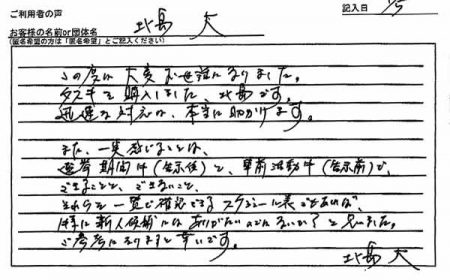 ご利用者の声
記入日 /5
お客様の名前or団体名
北島 大
(匿名希望の方は「匿名希望」とご記入ください)
この度は大変お世話になりました。
タスキを購入しました、北島です。
迅速な対応は、本当に助かります。
また、一実感じることは、
選挙期間中(告示後)と、事前活動中(告示前)で、
できることと、できないこと、
それらを一覧で確認できるスケジュール表などあれば、
特に新人候補にはありがたいのでないか?と思いました。
ご参考になりますと幸いです。
北島 大